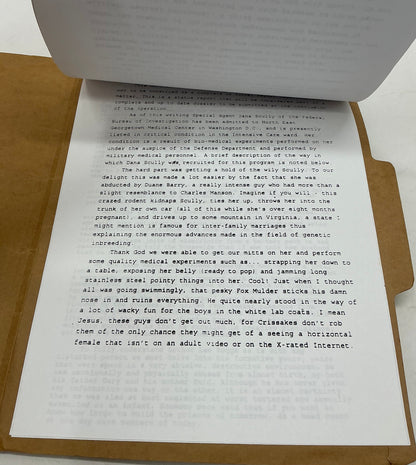 matter. This is a status report that will be considered
complete and up to date dossier to be submitted at the conclusion
of the operation.
As of this writing Special Agent Dana Scully of the Federal
Bureau of Investigation has been admitted to North East
Georgetown Medical Center in Washington D.C., and is presently
listed in critical condition in the Intensive Care ward. Her
condition is a result of bio-medical experiments performed on her
under the auspice of the Defense Department and performed by
military medical personnel. A brief description of the way in
which Dana Scully was recruited for this program is noted below.
The hard part was getting a hold of the wily Scully. To our
delight this was made a lot easier by the fact that she was
abducted by Duane Barry, a really intense guy who had more than a
slight resemblance to Charles Manson. Imagine if you will - this
crazed rodent kidnaps Scully, ties her up, throws her into the
trunk of her own car (all of this while she's over eight months
pregnant), and drives up to some mountain in Virginia, a state I
might mention is famous for inter-family marriages thus
explaining the enormous advances made in the field of genetic
inbreeding.
Thank God we were able to get our mitts on her and perform
some quality medical experiments such as... strapping her down to
a table, exposing her belly (ready to pop) and jamming long
stainless steel pointy things into her. Cool! Just when I thought
all was going swimmingly, that pesky Fox Mulder sticks his damn
nose in and ruins everything. He quite nearly stood in the way of
a lot of wacky fun for the boys in the white lab coats. I mean
Jesus, these guys don't get out much, for Crissakes don't rob
them of the only chance they might get of a seeing a horizontal
female that isn't on an adult video or on the X-rated Internet.